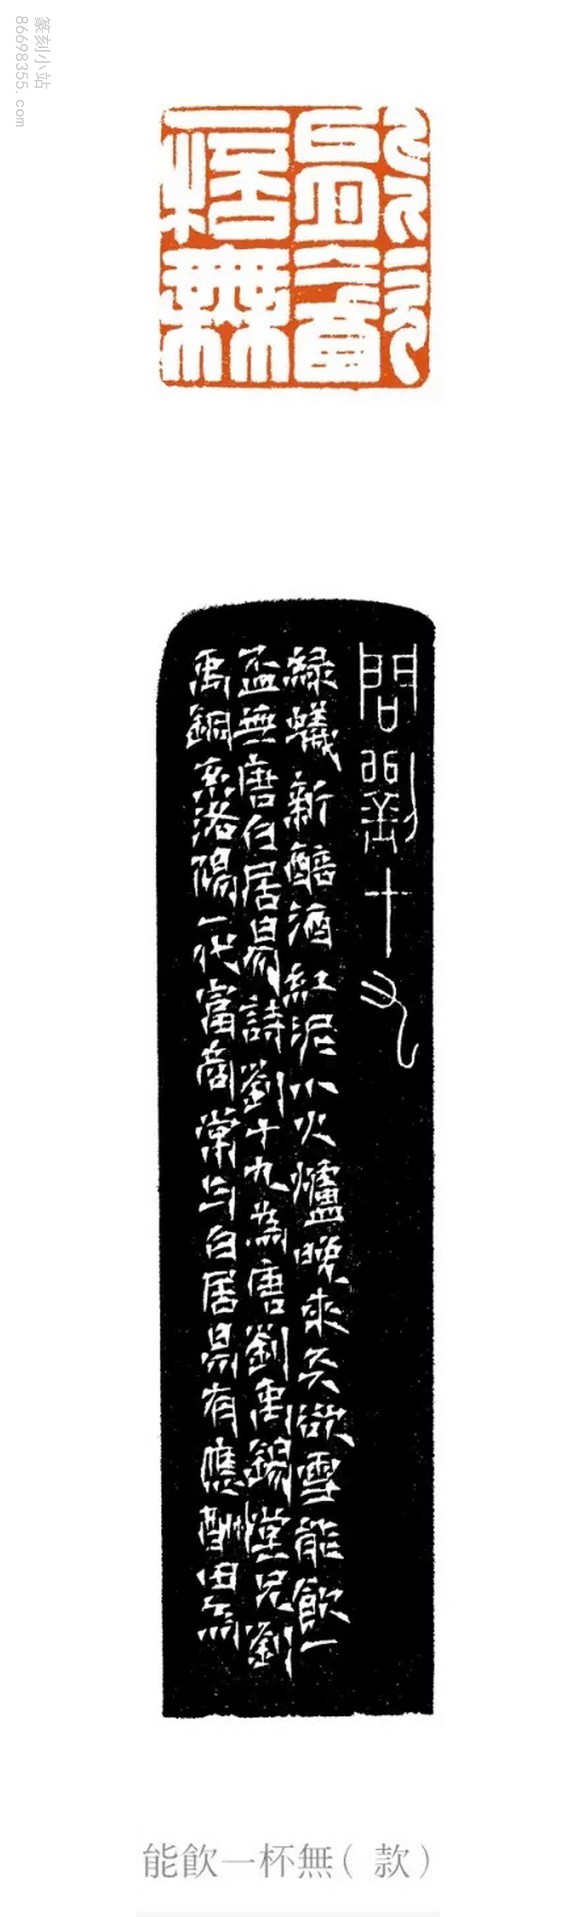 篆刻小站
86698355.com
能飲一杯無
問劉十九
綠蟻新醅酒紅泥小火爐晚來天欲雪能飲一
盃無唐白居易詩劉十九為唐劉禹錫堂兄劉
禹銅系洛陽一代富商常与白居易有應酬田為
能飲一杯無（款）